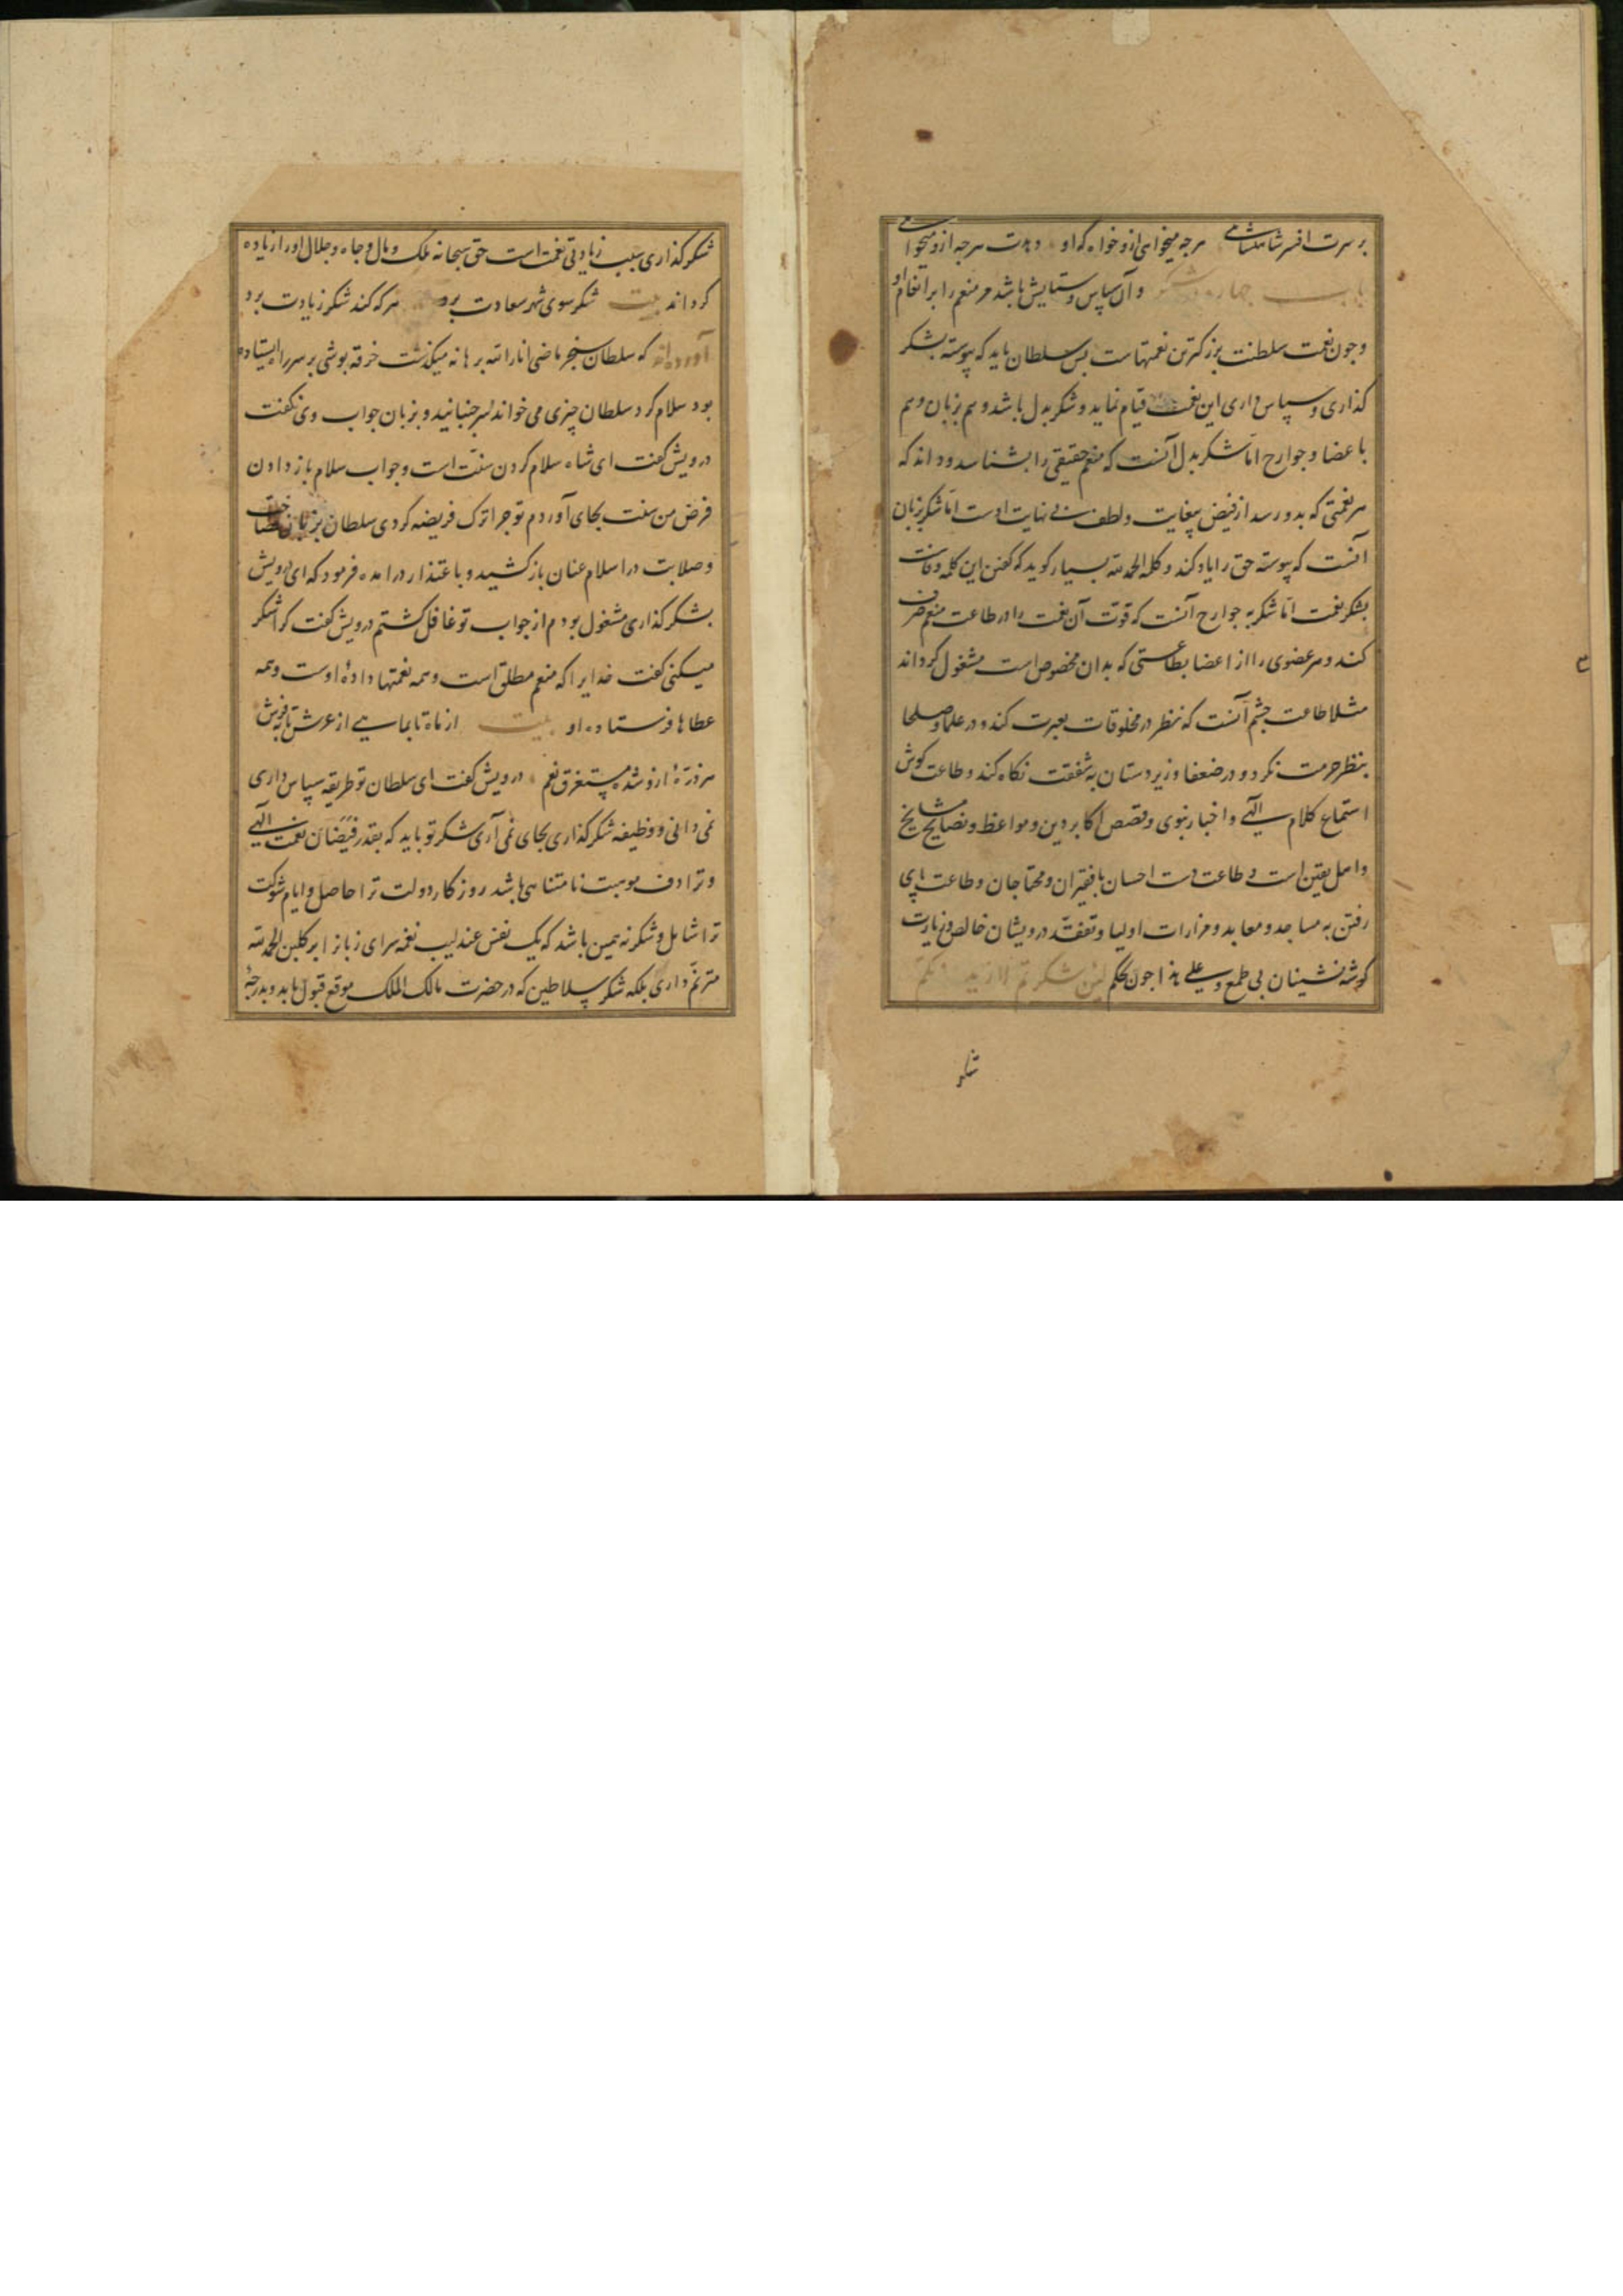 بر سرت افسر شاهنشاهی هرچه میخواهی ازو خواه که او دهدت هرچه ازو میخواهی
باب چهارم در شکر و آن سپاس و ستایش باشد مر منعم را بر انعام او
و چون نعمت سلطنت بزرکترین نعمتهاست پس سلطان باید که پیوسته بشکر
کذاری و سپاس داری این نعمت قیام نماید و شکر بدل باشد و هم بزبان و هم
باعضا و جوارح اما شکر بدل آنست که منعم حقیقی را بشناسد و داند که
هر نعمتی که بدو رسد از فیض بیغایت و لطف بی نهایت اوست اما شکر بزبان
آنست که پیوسته حق را یاد کند و کلمه الحمد لله بسیار کوید که کفتن این کلمه وفاست
بشکر نعمت اما شکر به جوارح آنست که قوت آن نعمت را در طاعت منعم صرف
کند و هر عضوی را از اعضا بطاعتی که بدان مخصوص است مشغول کرداند
مثلا طاعت چشم آنست که نظر در مخلوقات بعبرت کند و در علما و صلحا
بنظر حرمت نکرد و در ضعفا و زیردستان به شفقت نکاه کند و طاعت کوش
استماع کلام الهی و اخبار نبوی و قصص اکابر دین و مواعظ و نصایح مشایخ
و اهل یقین است و طاعت دست احسان با فقیران و محتاجان و طاعت پای
رفتن به مساجد و معابد و مزارات اولیا و تفقد درویشان خالص و زیارت
کوشه نشینان بی طمع و علی هذا چون بحکم لئن شکرتم لازیدنکم
شکر
شکر کذاری سبب زیادتی نعمت است حق سبحانه ملک و مال و جاه و جلال او را زیاده
کرداند بیت شکر سوی شهر سعادت برد هر که کند شکر زیادت برد
آورده‌اند که سلطان سنجر ماضی انار الله برهانه میکذشت خرقه پوشی بر سر راه ایستاده
بود سلام کرد سلطان چیزی می خواند سر جنبانید و بزبان جواب وی نکفت
درویش کفت ای شاه سلام کردن سنت است و جواب سلام باز دادن
فرض من سنت بجای آوردم تو چرا ترک فریضه کردی سلطان بزبان
و صلابت در اسلام عنان باز کشید و باعتذار درآمده فرمود که ای درویش
بشکر کذاری مشغول بودم از جواب تو غافل کشتم درویش کفت کرا شکر
میکنی کفت خدایرا که منعم مطلق است و همه نعمتها داده اوست و همه
عطاها فرستاده او بیت از ماه تا بماهی از عرش تا بفرش
هر ذره ازو شده مستغرق نعم درویش کفت ای سلطان تو طریقه سپاس داری
نمی دانی و وظیفه شکر کذاری بجای نمی آری شکر تو باید که بقدر فیضان نعمت الهی
و ترادف موهبت نامتناهی باشد روزکار دولت ترا حاصل و ایام شوکت
ترا شامل و شکر نه همین باشد که یک نفس عندلیب نغمه سرای زبانرا بر کلبن الحمد لله
مترنم داری بلکه شکر سلاطین که در حضرت مالک الملک موقع قبول یابد و بدرجه